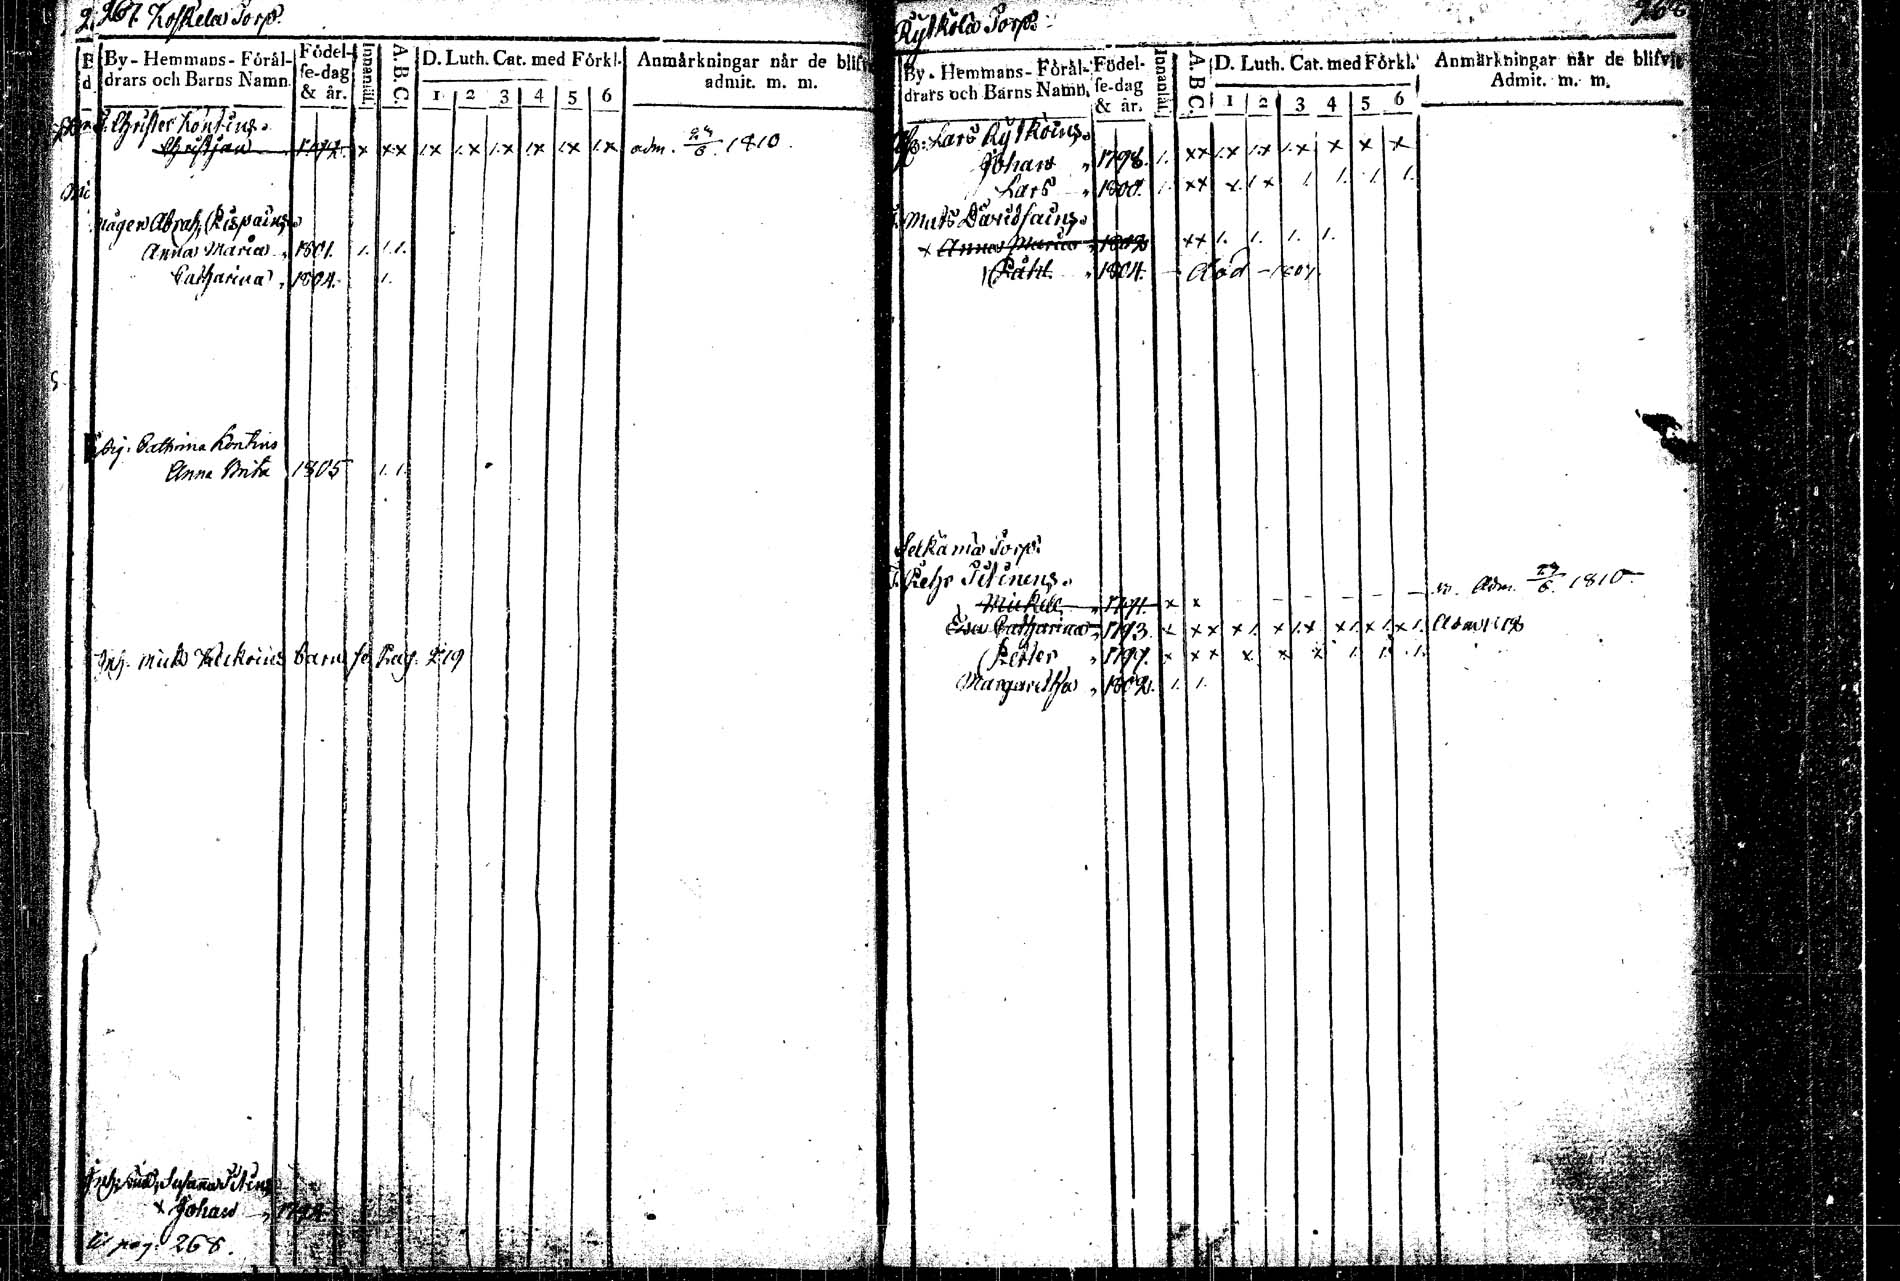 267. Koskela Torp.
By - Hemmans - Förål-
drars och Barns Namn.
Födel-
se-dag
& år.
Innanläs.
A. B. C.
D. Luth. Cat. med Förkl.
1 2 3 4 5 6
Anmärkningar når de blifvit
admit. m. m.
Christer Kontins
Christian 1794. x xx 1.x 1.x 1.x 1.x 1.x 1.x adm. 1810.
mågen Abrah. Rispains
Anna Maria 1801. 1. 1.1.
Catharina 1804. 1.
Cathrina Kontins
Anna Brita 1805 1. 1.
Inh. Mick barn se Pag. 219
Inh. Susanna Titins
x Johan
pag. 268.
Rytkölä Torp. 268
By - Hemmans - Förål-
drars och Barns Namn.
Födel-
se-dag
& år.
Innanläs.
A. B. C.
D. Luth. Cat. med Förkl.
1 2 3 4 5 6
Anmärkningar når de blifvit
Admit. m. m.
Lars Rytköins
Johan 1798. 1. xx 1.x 1.x 1.x x x x
Lars 1800. 1. xx x. 1 x 1. 1. 1. 1.
Mats Davidsains
x Anna Maria 1802 xx 1. 1. 1. 1.
Påhl 1804. - död - 1807.
Selkämä Torp.
Petr Titinens
Mickel 1791. x x - - - - - adm. 1810.
Eva Catharina 1793. x xx x1. x 1.x x1. x1. x1.
Petter 1797. x xx x. x x 1. 1. 1.
Margaretha 1802. 1. 1.